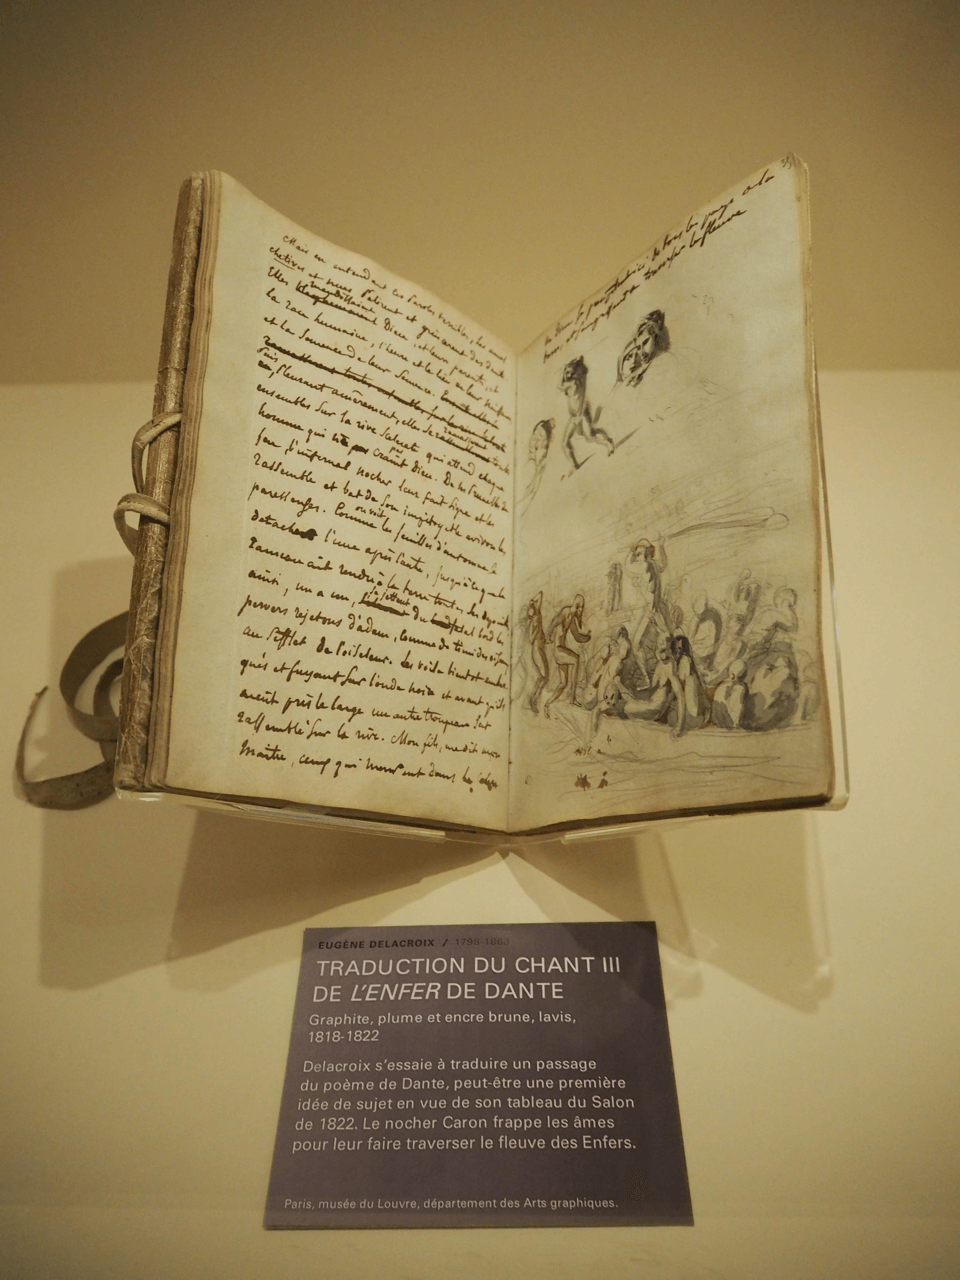 Mais en entendant ces paroles terribles, les ames
chetives et nues palirent et grincerent des dents.
Elles maudissaient blasphemaient Dieu, et leurs parents, et
la race humaine, l'heure et le lieu
et la Semence de leur Semence.
Puis
pleurant amèrement, elles se
ensembles Sur la rive qui attend chaque
homme qui ne craint pas Dieu. De
feu, l'infernal nocher leur fait signe et les
rassemble et bat de Son aviron les
paresseuses. Comme les feuilles d'automne se
detachent l'une après l'autre, jusqu'à ce que le
rameau ait rendu à la terre toutes Ses
ainsi, un a un, se jettent du bord les
pervers rejetons d'adam, comme
au Sifflet de l'oiseleur. Les voila
et fuyant Sur l'onde noire et avant qu'ils
aient pris le large un autre troupeau S'est
rassemblé Sur la rive. Mon fils, me dit mon
Maître, ceux qui meurent dans la
de tous les pays a la
traverser le fleuve
EUGÈNE DELACROIX / 1798-1863
TRADUCTION DU CHANT III
DE L'ENFER DE DANTE
Graphite, plume et encre brune, lavis,
1818-1822
Delacroix s'essaie à traduire un passage
du poème de Dante, peut-être une première
idée de sujet en vue de son tableau du Salon
de 1822. Le nocher Caron frappe les âmes
pour leur faire traverser le fleuve des Enfers.
Paris, musée du Louvre, département des Arts graphiques.